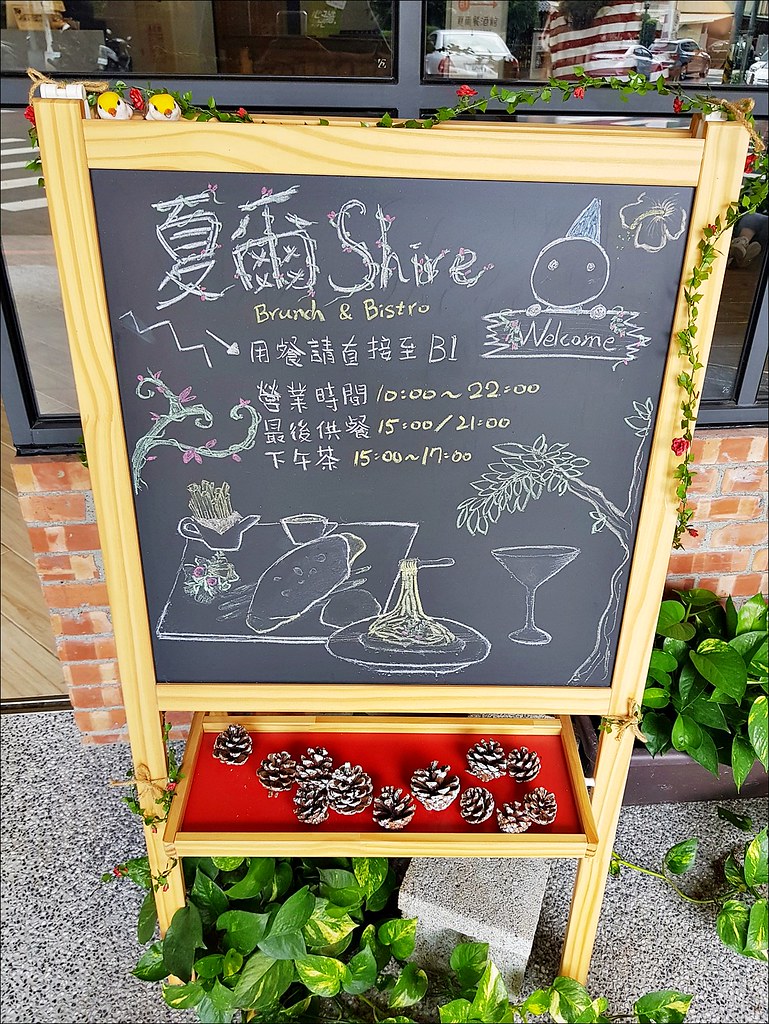 夏爾 Shire
Brunch & Bistro
Welcome
用餐請直接至 B1
營業時間 10:00~22:00
最後供餐 15:00/21:00
下午茶 15:00~17:00